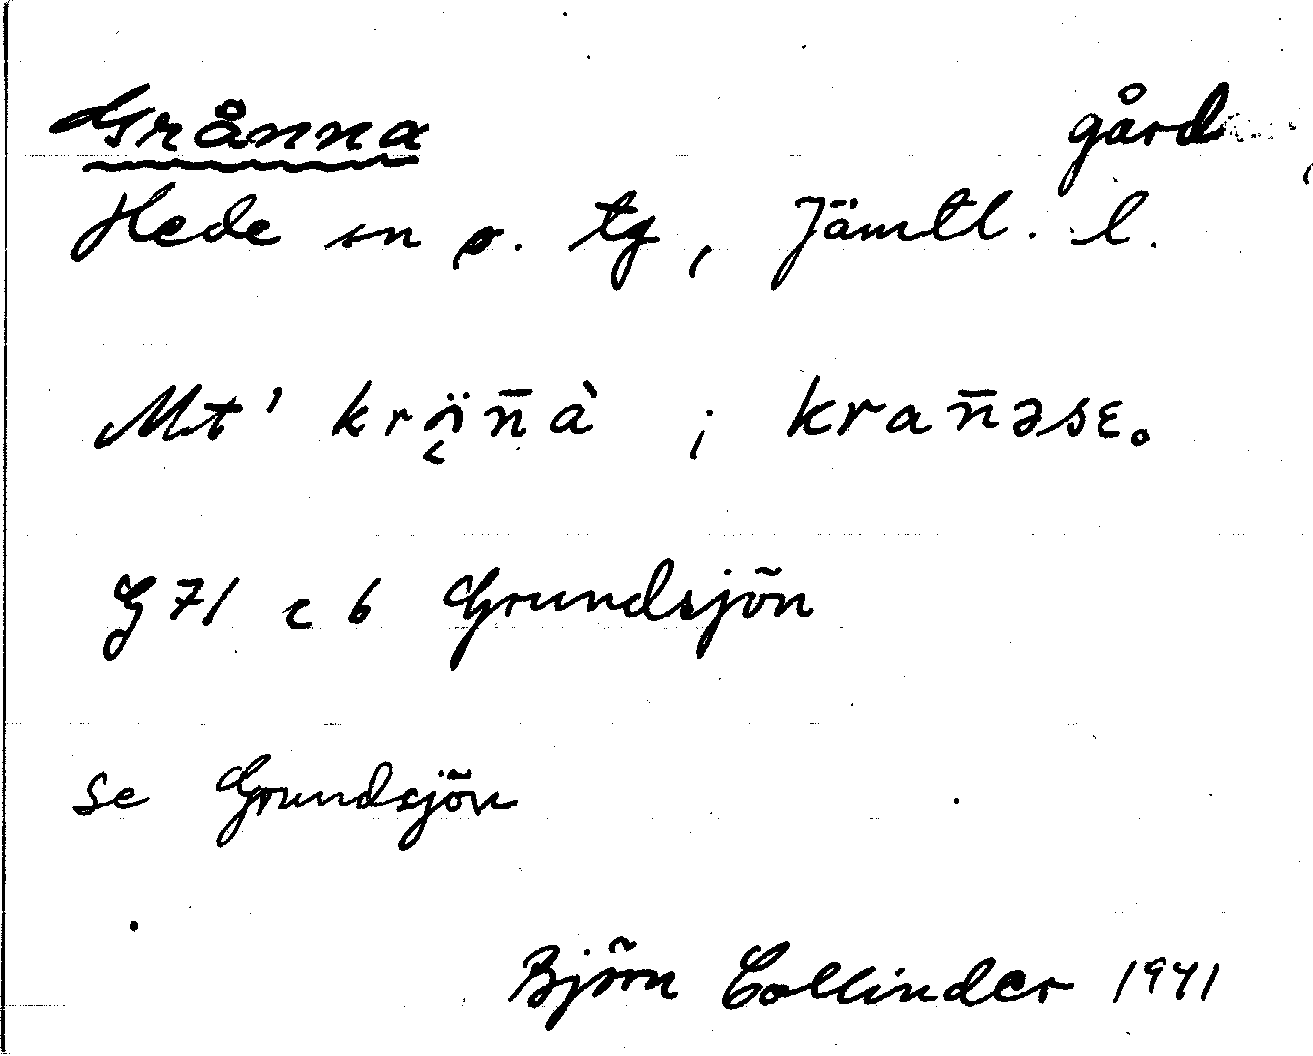 Grånna gård
Hede sn o. tg, Jämtl. l.
Mt' krö̜n̄à ; kran̄əsɛ.
G 71 c 6 Grundsjön
se Grundsjön
Björn Collinder 1941